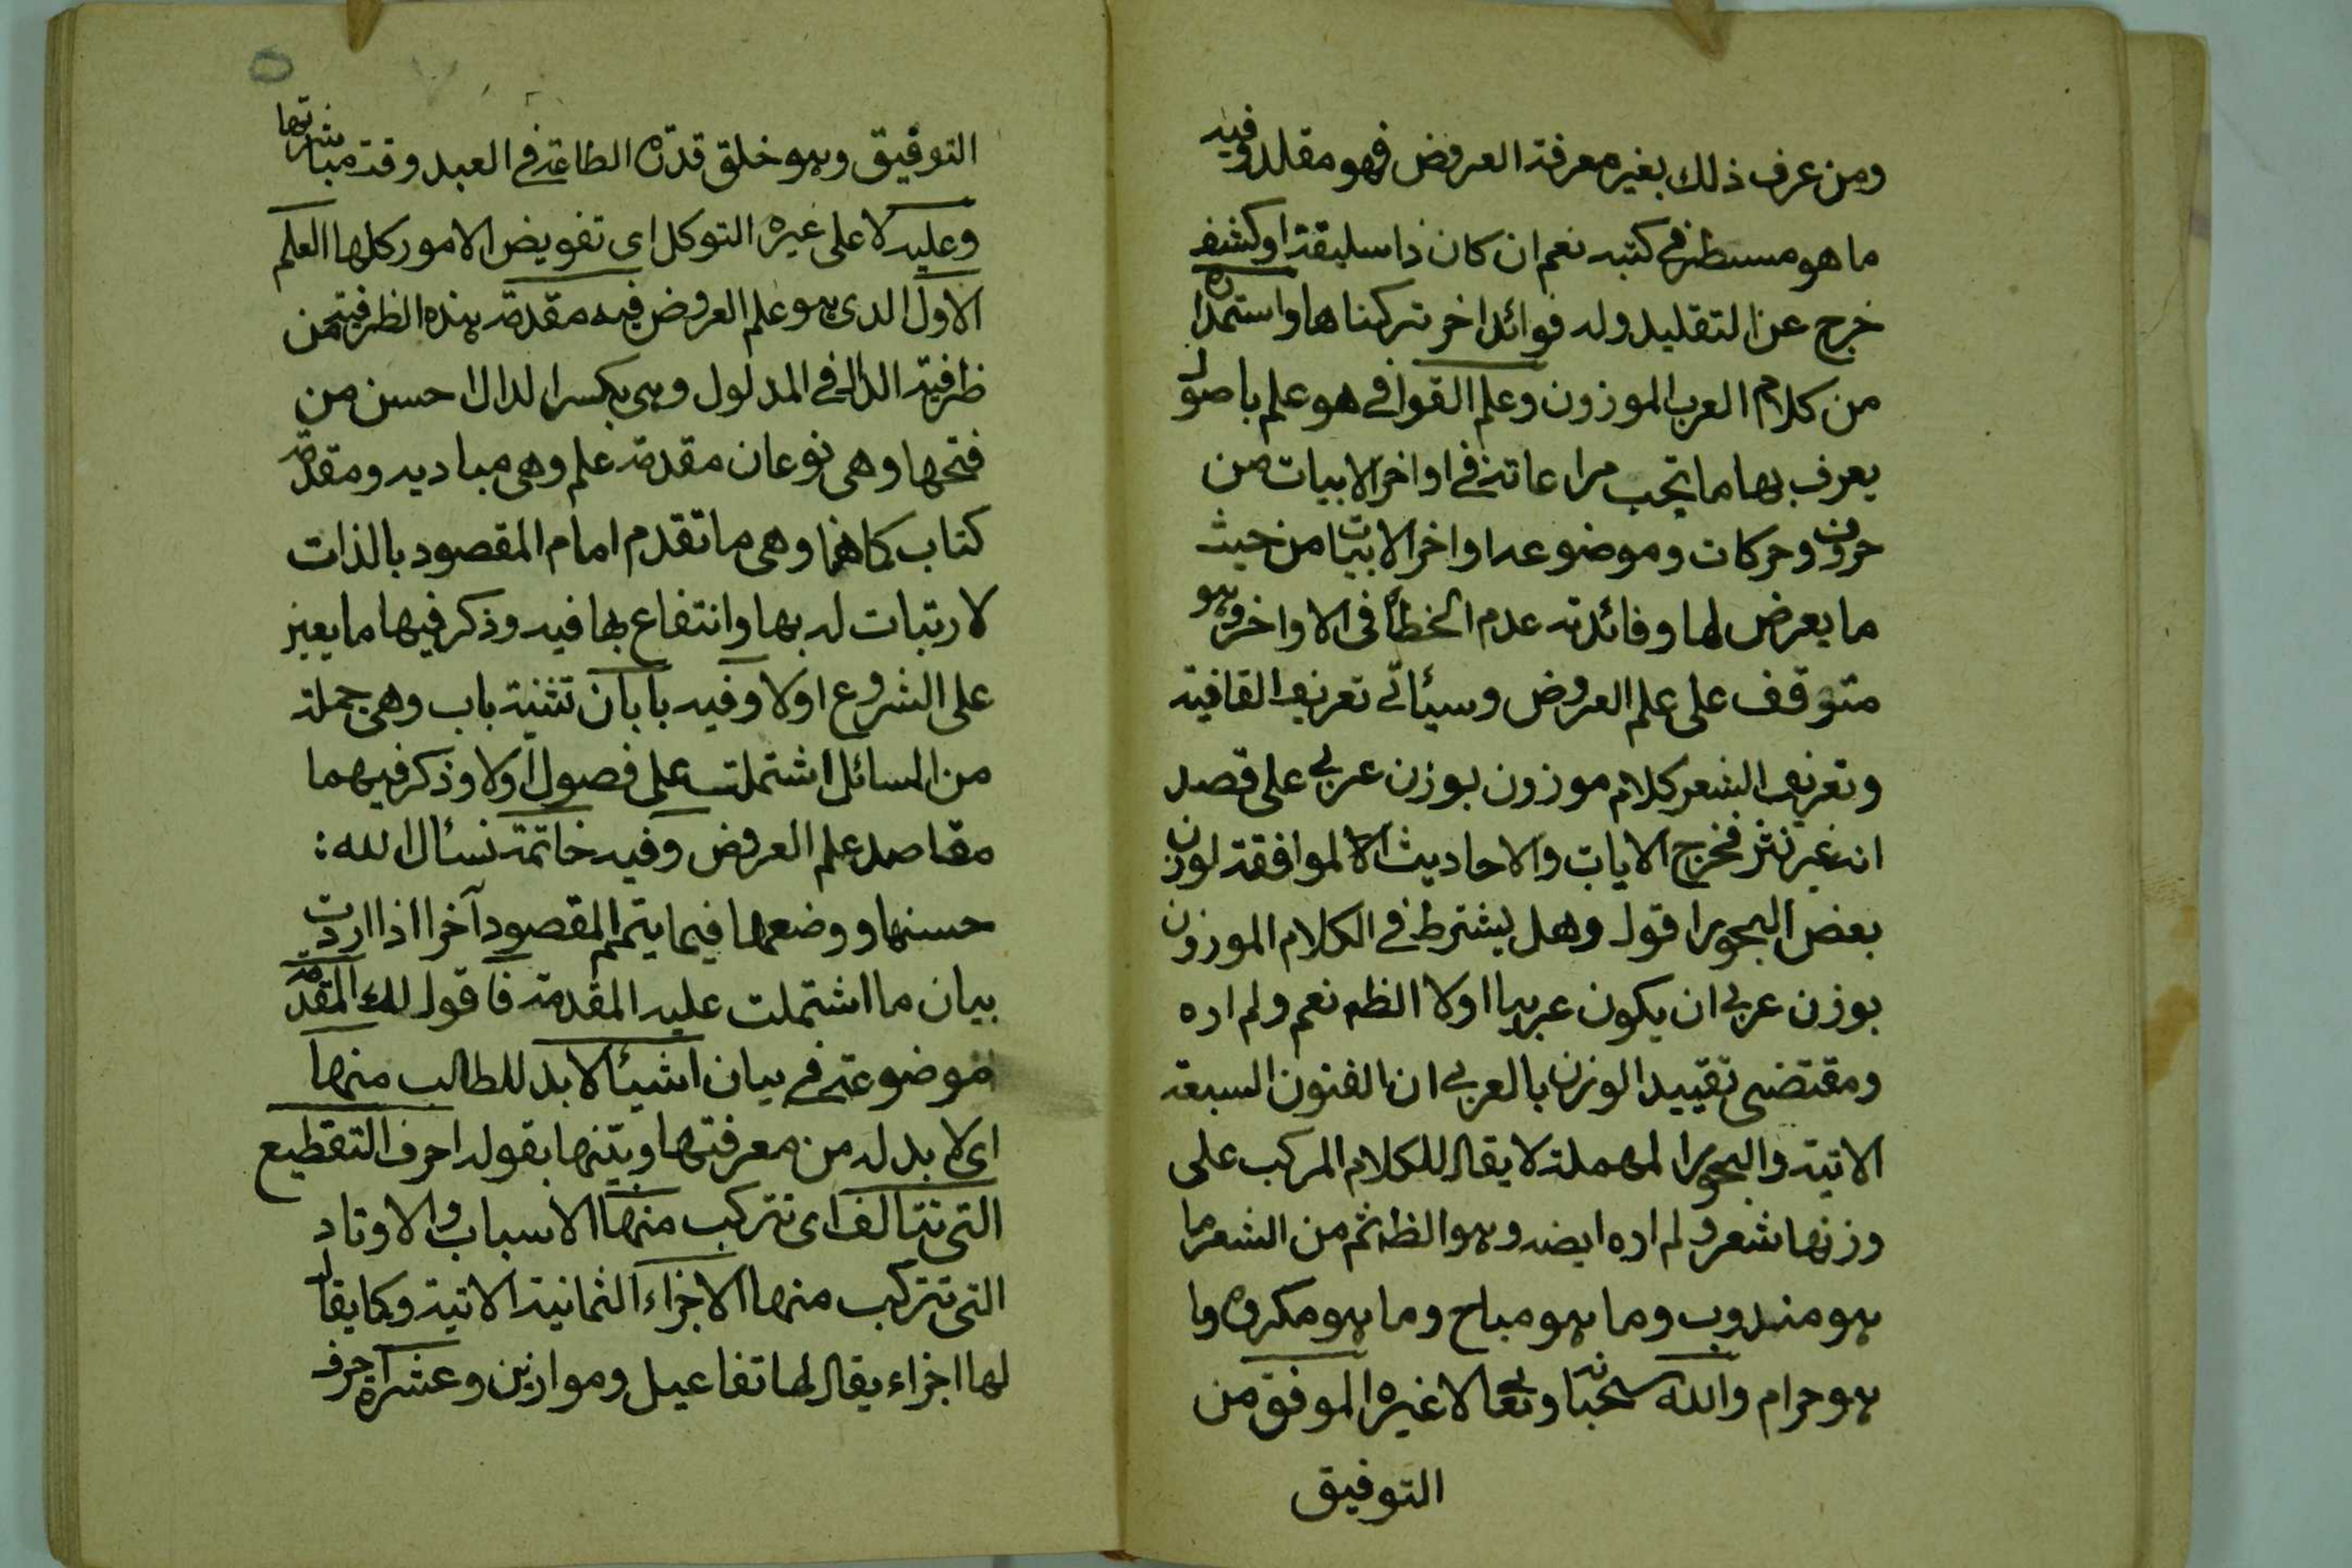 ومن عرف ذلك بغير معرفة العروض فهو مقلد وفيه
ما هو مسطر في كتبه نعم ان كان ذا سليقة او كشف
خرج عن التقليد وله فوائد اخر تركناها واستمداده
من كلام العرب الموزون وعلم القوافي هو علم باصول
يعرف بها ما يجب مراعاته في اواخر الابيات من
حروف وحركات وموضوعه اواخر الابيات من حيث
ما يعرض لها وفائدته عدم الخطأ في الاواخر وهو
متوقف على علم العروض وسيأتي تعريف القافية
وتعريف الشعر كلام موزون بوزن عربي على قصد
انه غير نثر فخرج الايات والاحاديث الموافقة لوزن
بعض البحور اقول وهل يشترط في الكلام الموزون
بوزن عربي ان يكون عربيا اولا الظه نعم ولم اره
ومقتضى تقييد الوزن بالعربي ان الفنون السبعة
الاتية والبحور المهملة لا يقال للكلام المركب على
وزنها شعر ولم اره ايضه وهو الظه ثم من الشعر ما
هو مندوب وما هو مباح وما هو مكروه وما
هو حرام والله سبحانه وتعالى لا غيره الموفق من
التوفيق
التوفيق وهو خلق قدرة الطاعة في العبد وقت مباشرتها
وعليه لا على غيره التوكل اى تفويض الامور كلها العلم
الاول الذى هو علم العروض فيه مقدمة هذه الظرفية من
ظرفية الدال في المدلول وهى بكسر الدال احسن من
فتحها وهى نوعان مقدمة علم وهى مباديه ومقدمة
كتاب كما هنا وهى ما تقدم امام المقصود بالذات
لارتبات له بها وانتفاع بها فيه وذكر فيها ما يعين
على الشروع اولا وفيه بابان تثنية باب وهى جملة
من المسائل اشتملت على فصول اولا وذكر فيهما
مقاصد علم العروض وفيه خاتمة نسئال الله:
حسنها ووضعها فيما يتم المقصود آخرا اذا اردت
بيان ما اشتملت عليه المقدمة فاقول لك المقدمة
موضوعة في بيان اشيئا لابد للطالب منها
اى لابد له من معرفتها وبينها بقوله احرف التقطيع
التى تتالف اى تتركب منها الاسباب والاوتاد
التى تتركب منها الاجزاء الثمانية الاتية وكما يقال
لها اجزاء يقال لها تفاعيل وموازين وعشرة احرف